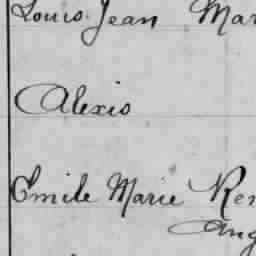 Louis Jean Mar
Alexis
Emile Marie Ren
Aug